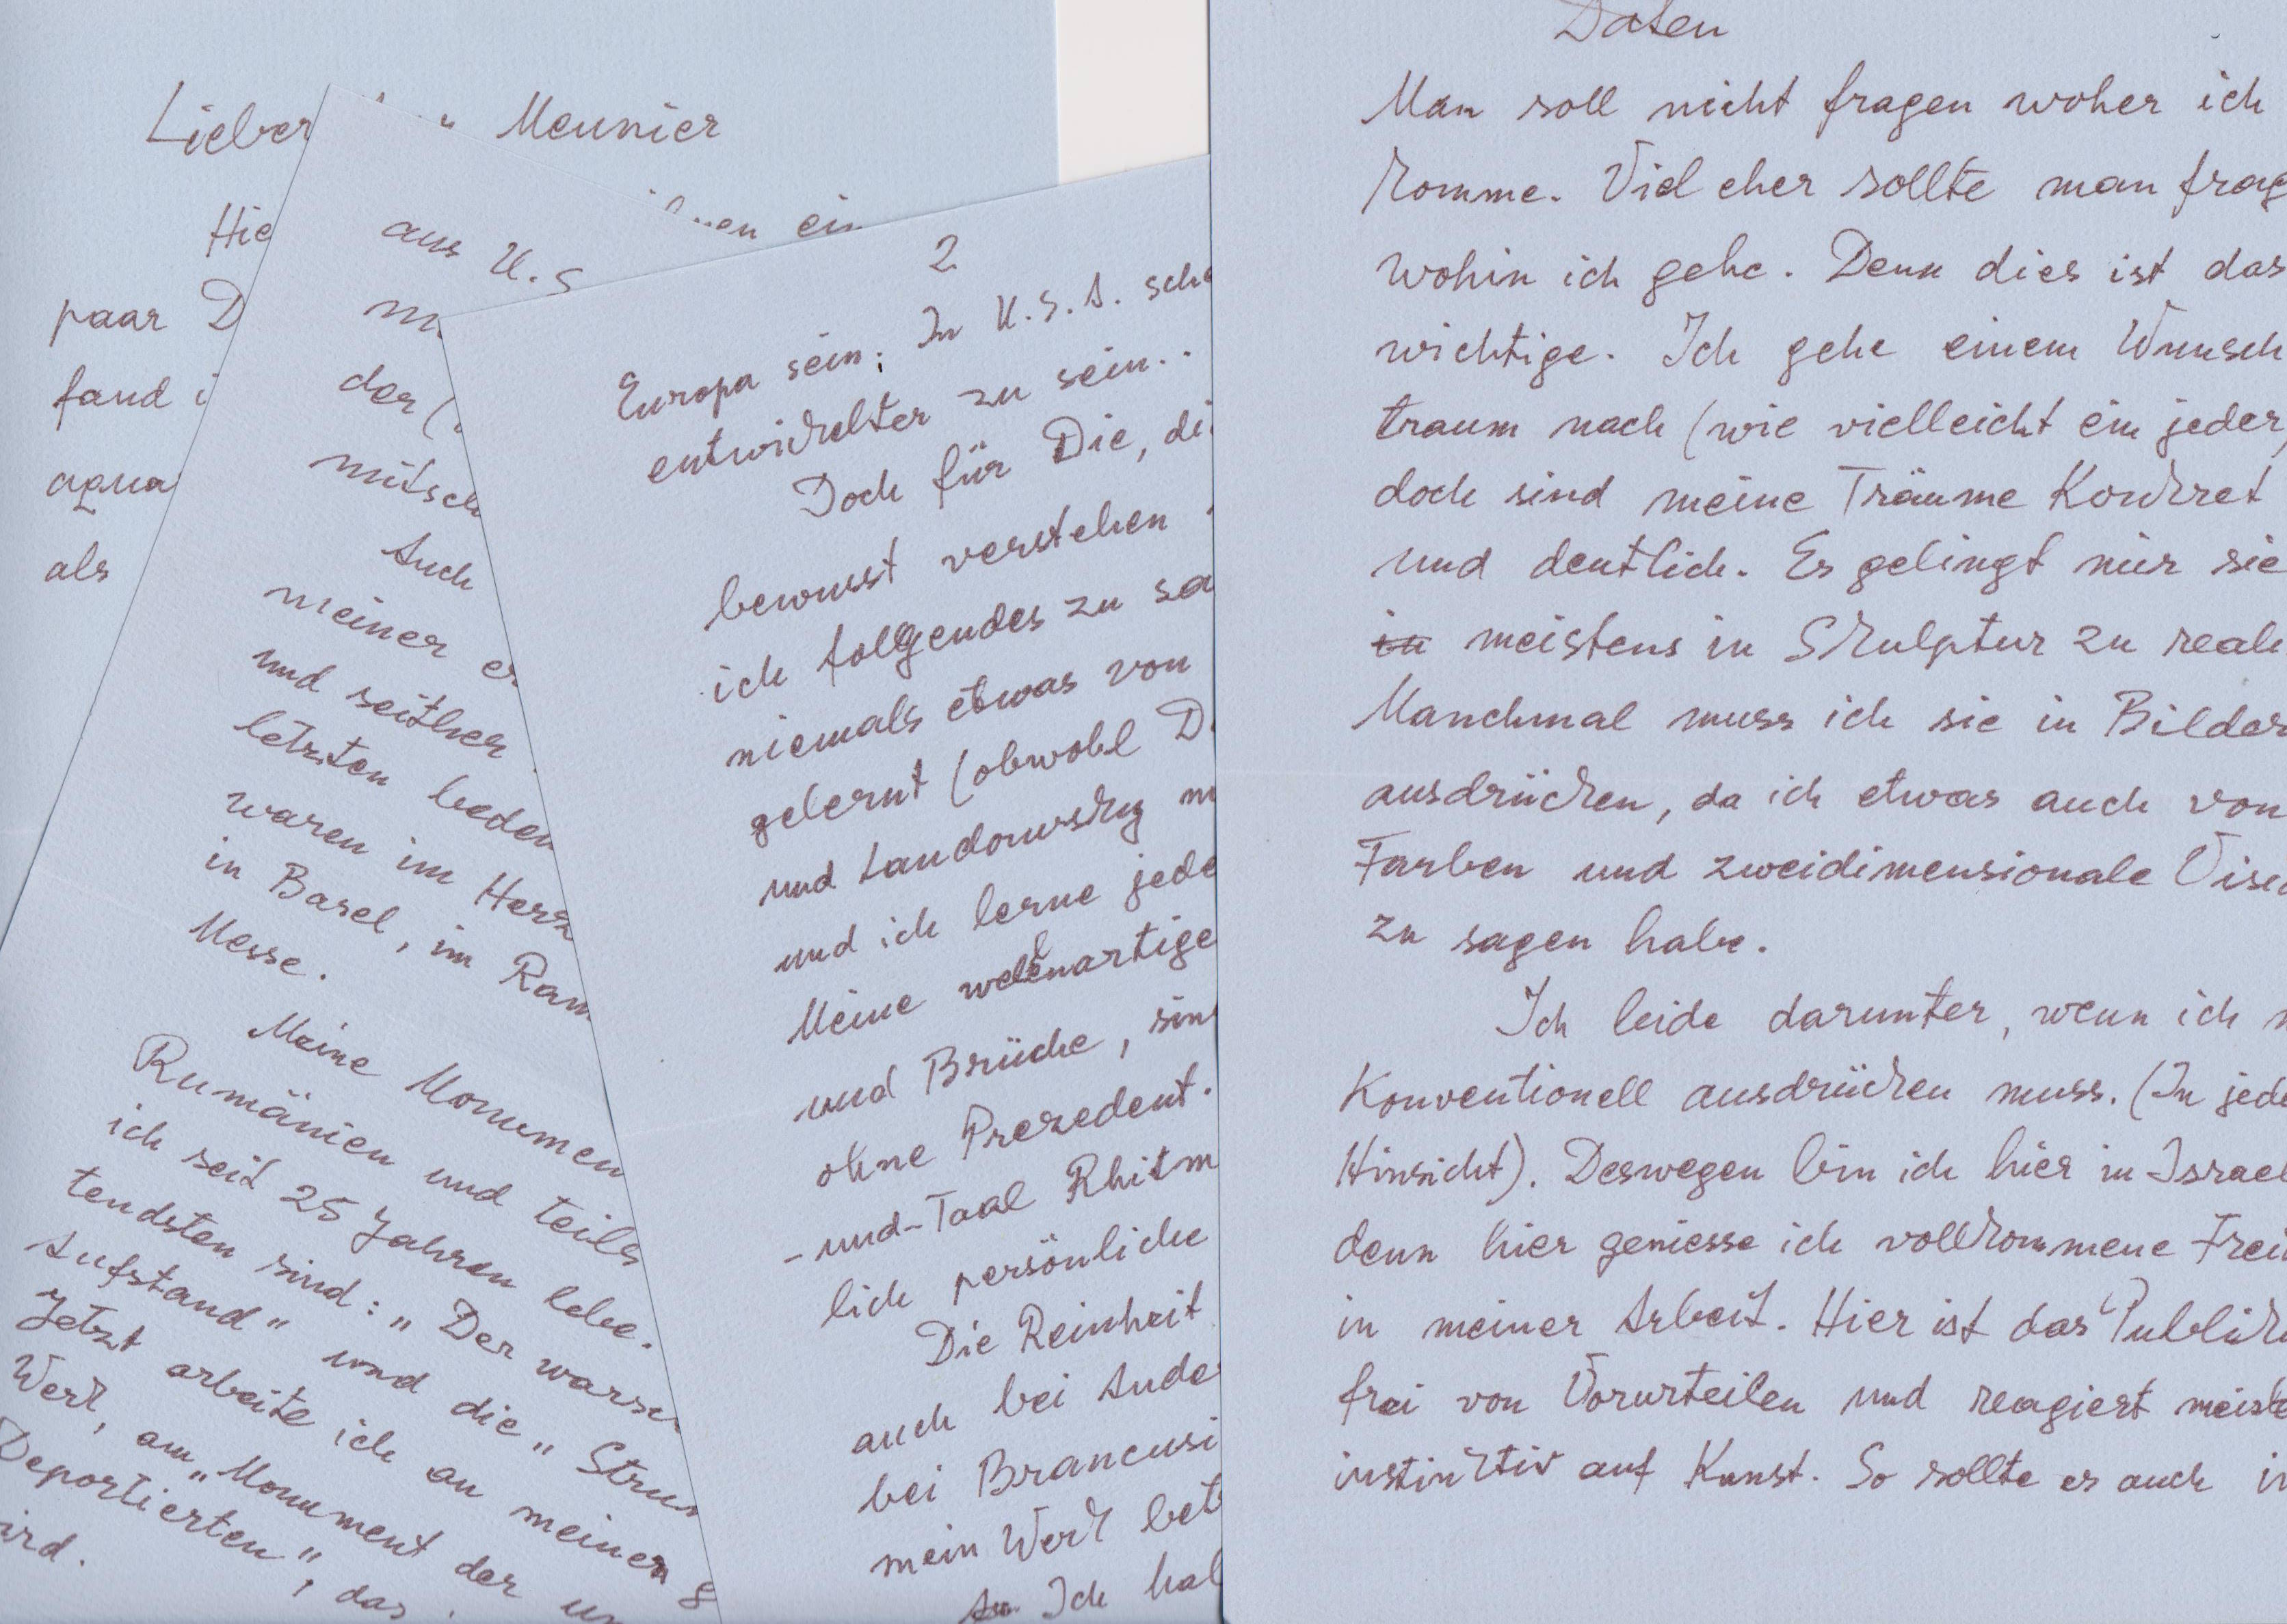 Lieber Meunier
Hie
ein
paar D
fand i
aqua
als
aus U.S
m
der (
mitsch
Auch
meiner e
und seither
letzten beden
waren im Herz
in Basel, im Ram
Messe.
Meine Monumen
Rumänien und teils
ich seit 25 Jahren lebe.
tendsten sind: "Der warsch
Aufstand" und die "Strus
Jetzt arbeite ich an meinen g
Werk, am "Monument der un
Deportierten", das
ird.
2
Europa sein; In U.S.A. sche
entwickelter zu sein..
Doch für Die, di
bewusst verstehen
ich folgendes zu sa
niemals etwas von
gelernt (obwohl D
und Landowsky m
und ich lerne jede
Meine wellenartige
und Brüche, sin
ohne Prezedent.
-und-Taal Rhitm
lich persönliche
Die Reinheit
auch bei Ande
bei Brancusi
mein Werk bet
Ich hal
Daten
Man soll nicht fragen woher ich
komme. Viel eher sollte man frag
wohin ich gehe. Denn dies ist das
wichtige. Ich gehe einem Wunsch
traum nach (wie vielleicht ein jeder,
doch sind meine Träume Konkret
und deutlich. Es gelingt mir sie
in meistens in Skulptur zu reali
Manchmal muss ich sie in Bilder
ausdrücken, da ich etwas auch von
Farben und zweidimensionale Visio
zu sagen habe.
Ich leide darunter, wenn ich m
Konventionell ausdrücken muss. (In jede
Hinsicht). Deswegen bin ich hier in Israel
denn hier geniesse ich vollkommene Frei
in meiner Arbeit. Hier ist das Publiku
frei von Vorurteilen und reagiert meiste
instinktiv auf Kunst. So sollte es auch in